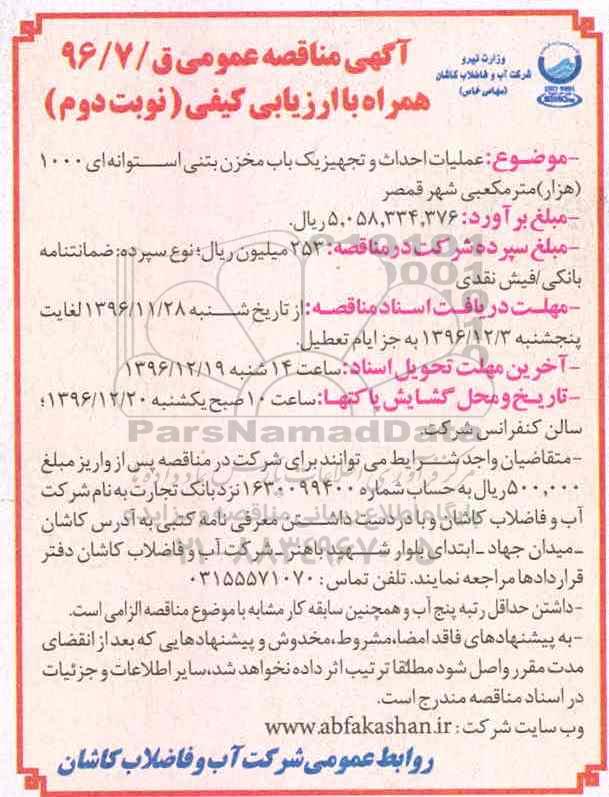 وزارت نیرو
شرکت آب و فاضلاب کاشان
(سهامی خاص)
آگهی مناقصه عمومی ق/۹۶/۷
همراه با ارزیابی کیفی (نوبت دوم)
-موضوع: عملیات احداث و تجهیز یک باب مخزن بتنی استوانه ای ۱۰۰۰
(هزار) مترمکعبی شهر قمصر
-مبلغ برآورد: ۵,۰۵۸,۳۳۴,۳۷۶ ریال.
-مبلغ سپرده شرکت در مناقصه: ۲۵۳ میلیون ریال؛ نوع سپرده: ضمانتنامه
بانکی/فیش نقدی
-مهلت دریافت اسناد مناقصه: از تاریخ شنبه ۱۳۹۶/۱۱/۲۸ لغایت
پنجشنبه ۱۳۹۶/۱۲/۳ به جز ایام تعطیل.
-آخرین مهلت تحویل اسناد: ساعت ۱۴ شنبه ۱۳۹۶/۱۲/۱۹
-تاریخ و محل گشایش پاکتها: ساعت ۱۰ صبح یکشنبه ۱۳۹۶/۱۲/۲۰؛
سالن کنفرانس شرکت.
ParsNamadData
-متقاضیان واجد شرایط می توانند برای شرکت در مناقصه پس از واریز مبلغ
۵۰۰,۰۰۰ ریال به حساب شماره ۱۶۳۰۰۹۹۴۰۰ نزد بانک تجارت به نام شرکت
آب و فاضلاب کاشان و با در دست داشتن معرفی نامه کتبی به آدرس کاشان
-میدان جهاد -ابتدای بلوار شهید باهنر -شرکت آب و فاضلاب کاشان دفتر
قراردادها مراجعه نمایند. تلفن تماس: ۰۳۱۵۵۵۷۱۰۷۰
-داشتن حداقل رتبه پنج آب و همچنین سابقه کار مشابه با موضوع مناقصه الزامی است.
-به پیشنهادهای فاقد امضا، مشروط، مخدوش و پیشنهادهایی که بعد از انقضای
مدت مقرر واصل شود مطلقا ترتیب اثر داده نخواهد شد، سایر اطلاعات و جزئیات
در اسناد مناقصه مندرج است.
وب سایت شرکت: www.abfakashan.ir
روابط عمومی شرکت آب و فاضلاب کاشان